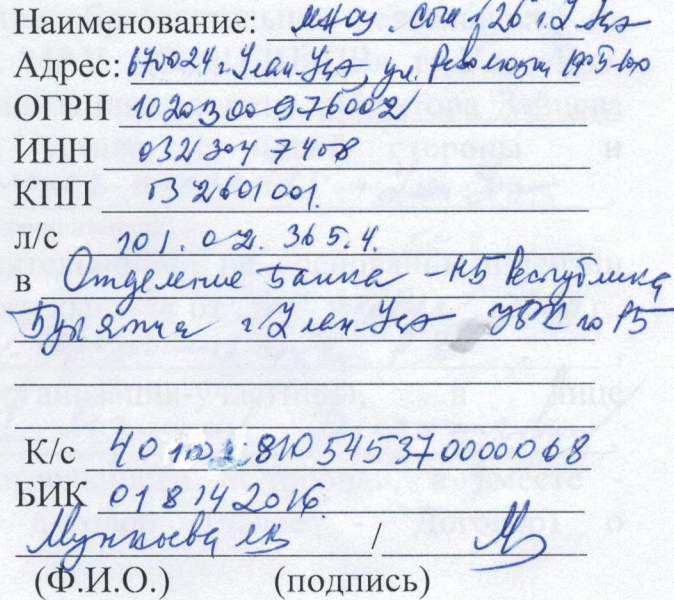 Наименование: МАОУ СОШ №26 г. Улан-Удэ
Адрес: 670024 г. Улан-Удэ, ул. Революции 1905-го
ОГРН 1020300976002
ИНН 0323047408
КПП 032601001
л/с 201.02.365.4.
в Отделение Банка-НБ Республика
Бурятия г. Улан-Удэ УФК по РБ
К/с 40102810545370000068
БИК 018142016
/
(Ф.И.О.) (подпись)